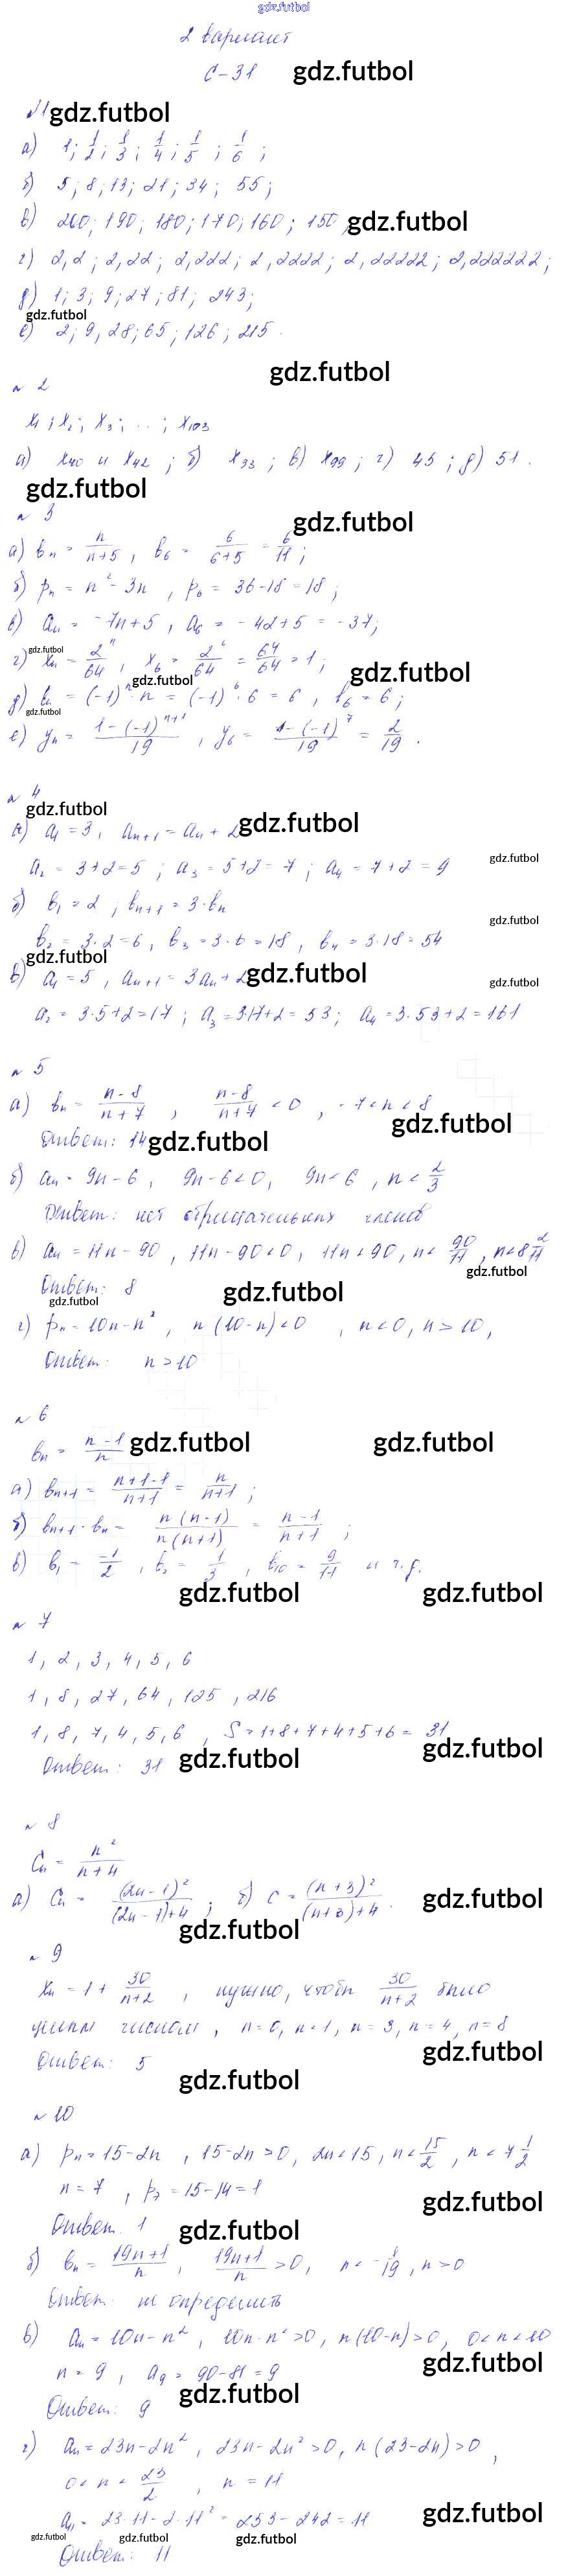 gdz.futbol
2 вариант
С-31 gdz.futbol
№1 gdz.futbol
а) 1; 1/2; 1/3; 1/4; 1/5; 1/6;
б) 5; 8; 13; 21; 34; 55;
в) 200; 190; 180; 170; 160; 150; gdz.futbol
г) 2,2; 2,22; 2,222; 2,2222; 2,22222; 2,222222;
д) 1; 3; 9; 27; 81; 243;
gdz.futbol
е) 2; 9, 28; 65; 126; 215.
gdz.futbol
№ 2
x₁; x₂; x₃; ...; x₁₀₃
а) x₄₀ и x₄₂; б) x₉₃; в) x₉₉; г) 45; д) 51.
gdz.futbol
№ 3 gdz.futbol
а) bₙ = n/(n+5), b₆ = 6/(6+5) = 6/11;
б) pₙ = n² - 3n, p₆ = 36-18 = 18;
в) aₙ = -7n+5, a₆ = -42+5 = -37;
gdz.futbol
г) xₙ = 2ⁿ/64, x₆ = 2⁶/64 = 64/64 = 1; gdz.futbol
gdz.futbol
д) bₙ = (-1)ⁿ · n = (-1)⁶ · 6 = 6, b₆ = 6;
gdz.futbol
е) yₙ = (1-(-1)ⁿ⁺¹)/19, y₆ = (1-(-1)⁷)/19 = 2/19.
№ 4
gdz.futbol
а) a₁ = 3, aₙ₊₁ = aₙ + 2 gdz.futbol
a₂ = 3+2=5; a₃ = 5+2=7; a₄ = 7+2=9 gdz.futbol
б) b₁ = 2; bₙ₊₁ = 3·bₙ
gdz.futbol
b₂ = 3·2=6, b₃ = 3·6=18, b₄ = 3·18=54
gdz.futbol
в) a₁ = 5, aₙ₊₁ = 3aₙ+2 gdz.futbol gdz.futbol
a₂ = 3·5+2=17; a₃ = 3·17+2=53; a₄ = 3·53+2=161
№ 5
а) bₙ = (n-8)/(n+7), (n-8)/(n+7) < 0, -7<n<8
gdz.futbol
Ответ: 14 gdz.futbol
б) aₙ = 9n-6, 9n-6<0, 9n<6, n< 2/3
Ответ: нет отрицательных членов
в) aₙ = 11n-90, 11n-90<0, 11n<90, n< 90/11, n<8 2/11
gdz.futbol
Ответ: 8
gdz.futbol gdz.futbol
г) pₙ = 10n-n², n(10-n)<0, n<0, n>10,
Ответ: n>10
№ 6
bₙ = (n-1)/n gdz.futbol gdz.futbol
а) bₙ₊₁ = (n+1-1)/(n+1) = n/(n+1);
б) bₙ₊₁·bₙ = n(n-1)/(n(n+1)) = (n-1)/(n+1);
в) b₁ = -1/2, b₂ = 1/3, b₁₀ = 9/11 и т.д.
gdz.futbol gdz.futbol
№ 7
1, 2, 3, 4, 5, 6
1, 8, 27, 64, 125, 216
1, 8, 7, 4, 5, 6, S = 1+8+7+4+5+6 = 31
gdz.futbol
Ответ: 31 gdz.futbol
№ 8
Cₙ = n²/(n+4)
а) Cₙ = (2n-1)²/((2n-1)+4); б) C = (n+3)²/((n+3)+4). gdz.futbol
gdz.futbol
№ 9
xₙ = 1 + 30/(n+2), нужно, чтобы 30/(n+2) было
целым числом, n=0, n=1, n=3, n=4, n=8
gdz.futbol
Ответ: 5 gdz.futbol
№ 10
а) pₙ = 15-2n, 15-2n>0, 2n<15, n< 15/2, n<7 1/2
n = 7, p₇ = 15-14=1
gdz.futbol
Ответ. 1 gdz.futbol
б) bₙ = (19n+1)/n, (19n+1)/n > 0, n< -1/19, n>0
Ответ: не определить
в) aₙ = 10n-n², 10n-n²>0, n(10-n)>0, 0<n<10
gdz.futbol
n = 9, a₉ = 90-81=9
gdz.futbol
Ответ: 9
г) aₙ = 23n-2n², 23n-2n²>0, n(23-2n)>0,
0<n< 23/2, n = 11
a₁₁ = 23·11-2·11² = 253-242=11 gdz.futbol
gdz.futbol gdz.futbol gdz.futbol
Ответ: 11